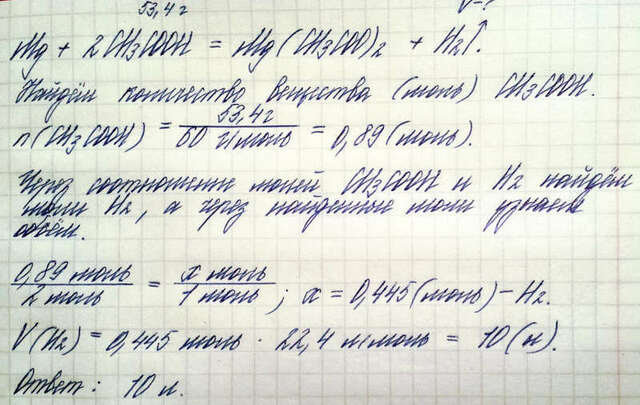 53,4 г V-?
Mg + 2CH3COOH = Mg(CH3COO)2 + H2↑.
Найдём количество вещества (моль) CH3COOH.
n(CH3COOH) = 53,4г / 60 г/моль = 0,89 (моль).
Через соотношение молей CH3COOH и H2 найдём
моли H2, а через найденные моли узнаем
объём.
0,89 моль / 2 моль = x моль / 1 моль ; x = 0,445 (моль) – H2.
V(H2) = 0,445 моль · 22,4 л/моль = 10 (л).
Ответ: 10 л.